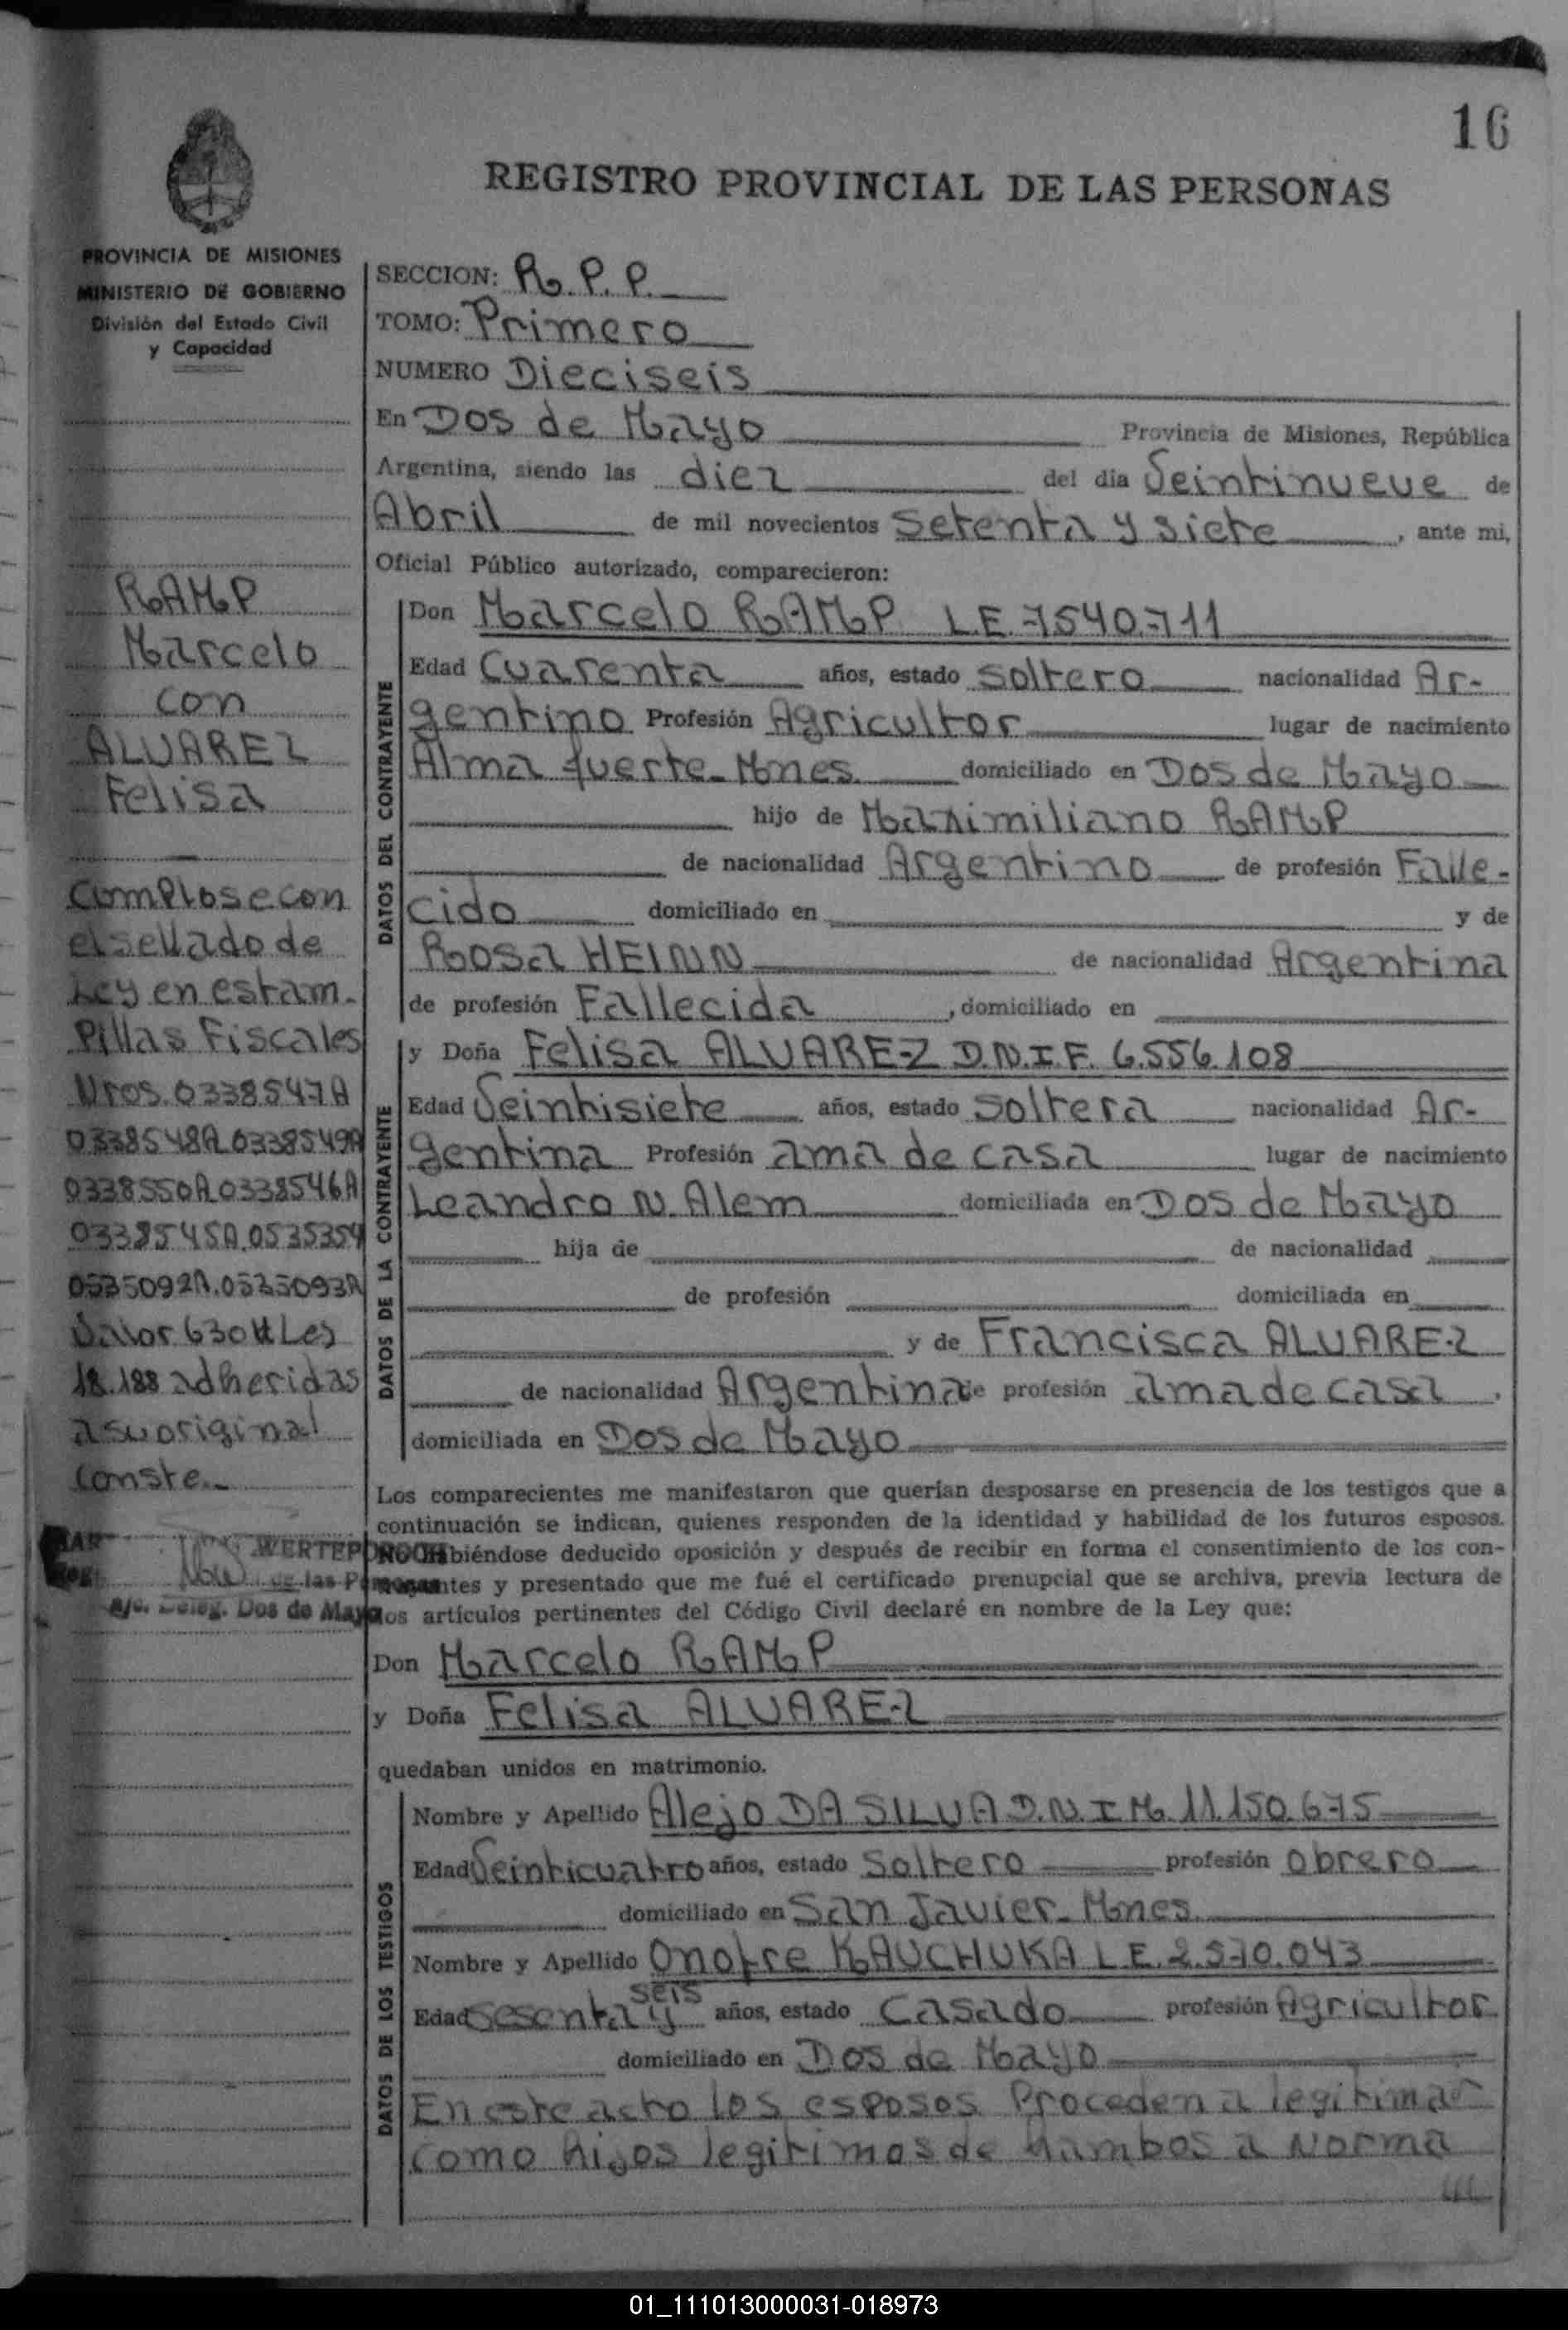 16
REGISTRO PROVINCIAL DE LAS PERSONAS
PROVINCIA DE MISIONES
MINISTERIO DE GOBIERNO
División del Estado Civil
y Capacidad
RAMP
Marcelo
con
ALVAREZ
Felisa
Cumplose con
el sellado de
Ley en estam-
pillas Fiscales
Nros. 0338547A
0338548A 0338549A
0338550A 0338546A
0338545A. 0535354
0535092A. 0535093A
Valor 630 Ley
18.188 adheridas
a su original
Conste.-
WERTEP
de las P
Dos de Mayo
SECCION: R.P.P.
TOMO: Primero
NUMERO Dieciseis
En Dos de Mayo Provincia de Misiones, República
Argentina, siendo las diez del día Veintinueve de
Abril de mil novecientos Setenta y siete, ante mi,
Oficial Público autorizado, comparecieron:
DATOS DEL CONTRAYENTE
Don Marcelo RAMP L.E. 7540.711
Edad Cuarenta años, estado soltero nacionalidad Ar-
gentino Profesión Agricultor lugar de nacimiento
Alma fuerte-Mnes. domiciliado en Dos de Mayo
hijo de Maximiliano RAMP
de nacionalidad Argentino de profesión Falle-
cido domiciliado en y de
Rosa HEINN de nacionalidad Argentina
de profesión Fallecida, domiciliado en
DATOS DE LA CONTRAYENTE
y Doña Felisa ALVAREZ D.N.I.F. 6.556.108
Edad Veintisiete años, estado soltera nacionalidad Ar-
gentina Profesión ama de casa lugar de nacimiento
Leandro N. Alem domiciliada en Dos de Mayo
hija de de nacionalidad
de profesión domiciliada en
y de Francisca ALVAREZ
de nacionalidad Argentina de profesión ama de casa.
domiciliada en Dos de Mayo
Los comparecientes me manifestaron que querían desposarse en presencia de los testigos que a
continuación se indican, quienes responden de la identidad y habilidad de los futuros esposos.
biéndose deducido oposición y después de recibir en forma el consentimiento de los con-
ntes y presentado que me fué el certificado prenupcial que se archiva, previa lectura de
los artículos pertinentes del Código Civil declaré en nombre de la Ley que:
Don Marcelo RAMP
y Doña Felisa ALVAREZ
quedaban unidos en matrimonio.
DATOS DE LOS TESTIGOS
Nombre y Apellido Alejo DA SILVA D.N.I M. 11.150.675
Edad Veinticuatro años, estado Soltero profesión obrero
domiciliado en San Javier-Mnes.
Nombre y Apellido Onofre KAUCHUKA L.E. 2.570.043
Edad sesenta y seis años, estado Casado profesión Agricultor
domiciliado en Dos de Mayo
En este acto los esposos Proceden a legitimar
como hijos legitimos de hambos a Norma
///
01_111013000031-018973